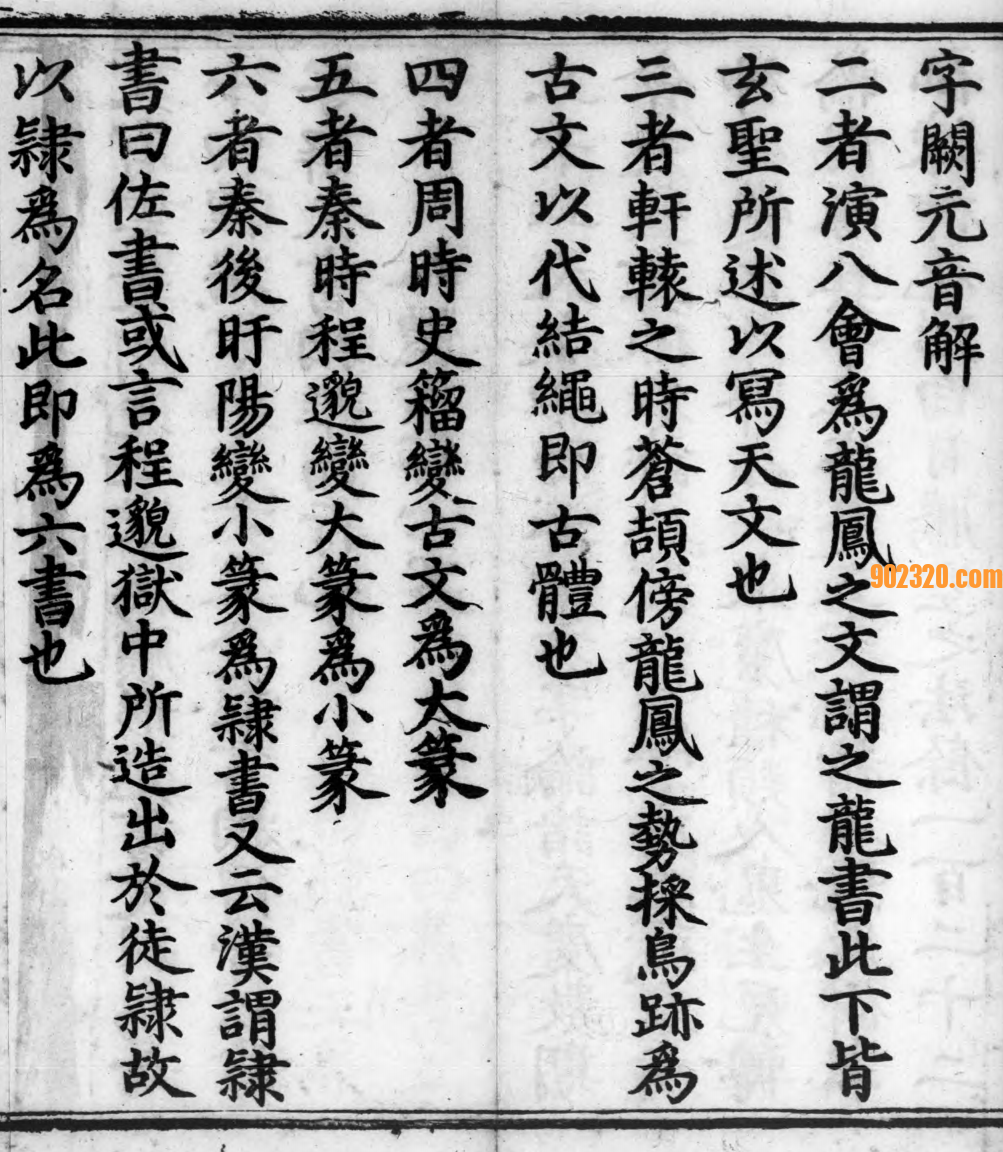 字闕元音解
二者演八會爲龍鳳之文謂之龍書此下皆
玄聖所述以冩天文也
三者軒轅之時蒼頡傍龍鳳之勢採鳥跡爲
古文以代結繩即古體也
四者周時史籀變古文爲大篆
五者秦時程邈變大篆爲小篆
六者秦後盱陽變小篆爲隷書又云漢謂隷
書曰佐書或言程邈獄中所造出於徒隷故
以隷爲名此即爲六書也
902320.com